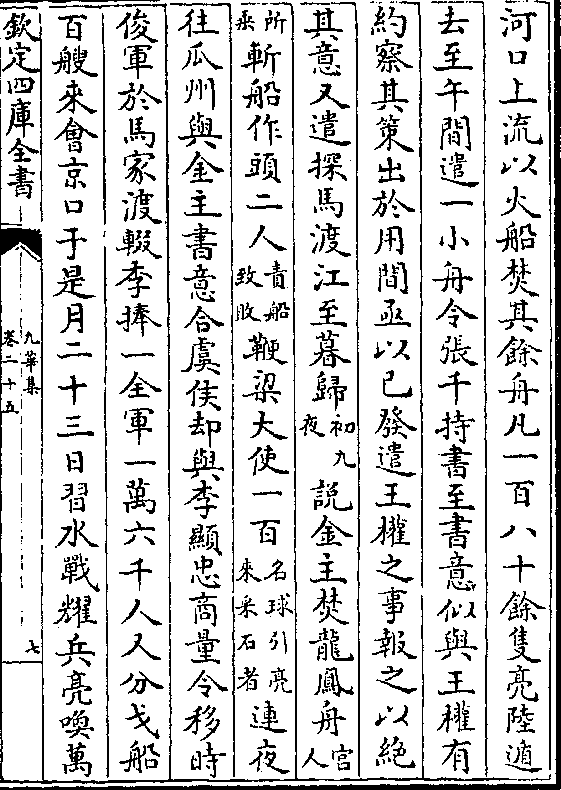 河口上流以火船焚其餘舟凡一百八十餘隻亮陸遁
去至午間遣一小舟令張千持書至書意似與王權有
約察其策出於用間亟以已發遣王權之事報之以絶
其意又遣探馬渡江至暮歸初九夜說金主焚龍鳳舟宫人
所乗斬船作頭二人責船致敗鞭梁大使一百名球引亮來采石者連夜
往瓜州與金主書意合虞侯却與李顯忠商量令移時
俊軍於馬家渡輟李捧一全軍一萬六千人又分戈船
百艘來會京口于是月二十三日習水戰耀兵亮喚萬
欽定四庫全書
九華集
卷二十五
七